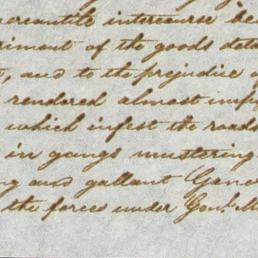 ercantile intercourse be
riment of the goods deta
, and to the prejudice o
rendered almost imp
which infest the roads
in gangs mustering
ng and gallant Gene
the forces under Genl. M